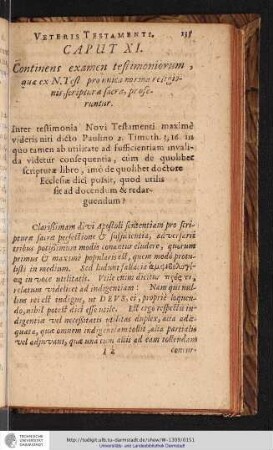 VETERIS TESTAMENTI.
CAPUT XI.
Continens examen testimoniorum,
quæ ex N. Test pro unica norma religio-
nis, scriptura sacra, profe-
runtur.
Inter testimonia Novi Testamenti maximè
videris niti dicto Paulino 2. Timoth. 3, 16. in
quo tamen ab utilitate ad sufficientiam invali-
da videtur consequentia, cùm de quolibet
scripturæ libro, imò de quolibet doctore
Ecclesiæ dici possit, quod utilis
sit ad docendum & redar-
guendum?
Clarissimam divi Apostoli sententiam pro scri-
pturæ sacræ perfectione & sufficientia, adversarii
tribus potissimùm modis conantur eludere, quorum
primus & maximè popularis est, quem modò protu-
listi in medium. Sed ludunt
in voce utilitatis. Utile enim dicitur
relatum videlicet ad indigentiam: Nam qui nul-
lius rei est indigus, ut DEUS, ei, propriè loquen-
do, nihil potest dici esse utile. Est ergo respectu in-
digentiæ vel necessitatis utilitas duplex, alia adæ-
quata, quæ omnem indigentiam tollit, alia partialis
vel adjuvans, quæ una cum aliis ad eam tollendam
http://tudigit.ulb.tu-darmstadt.de/show/W-1399/0151
Universitäts- und Landesbibliothek Darmstadt